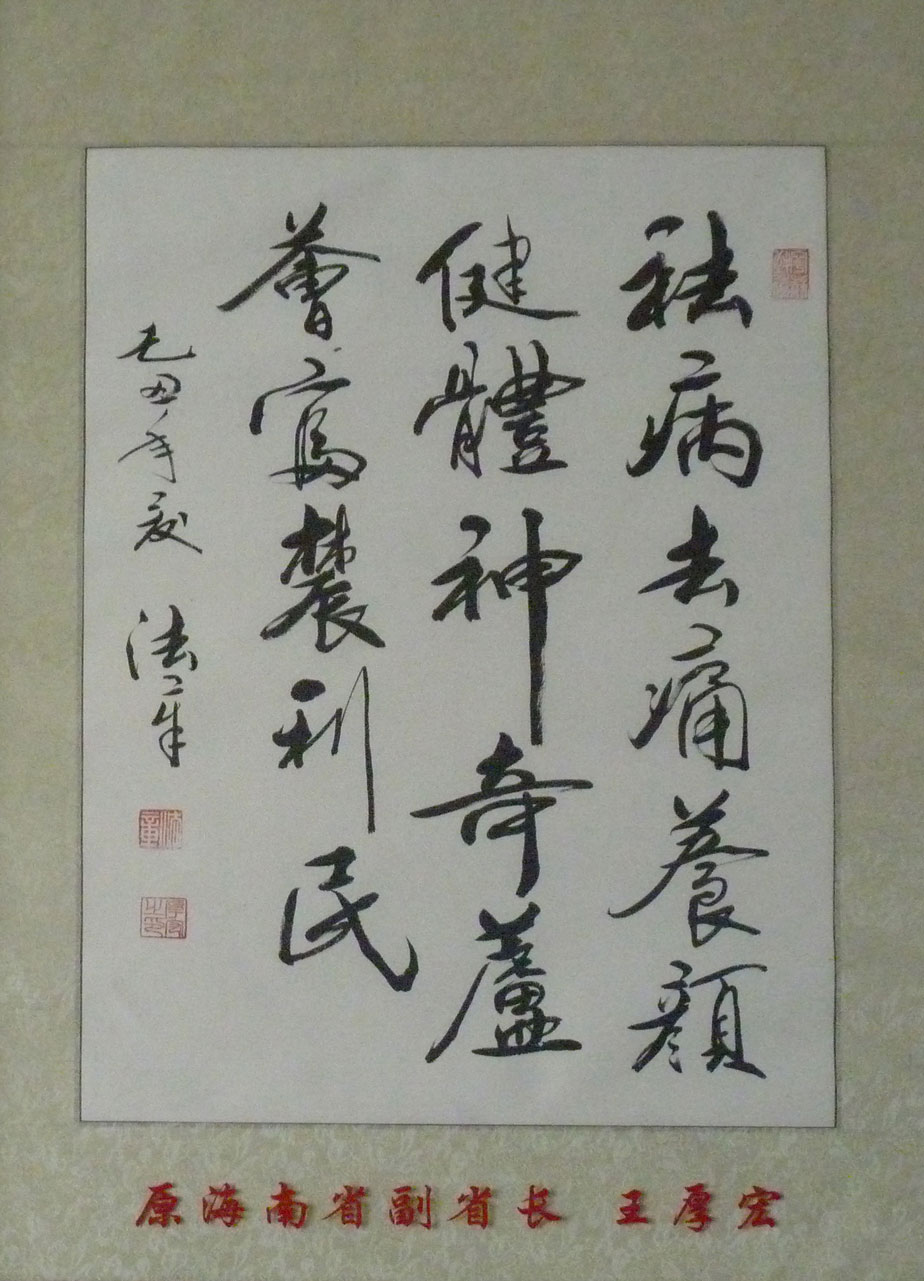 祛病去痛養顏
健體神奇蘆
薈富辳利民
己丑年夏
原海南省副省长 王厚宏